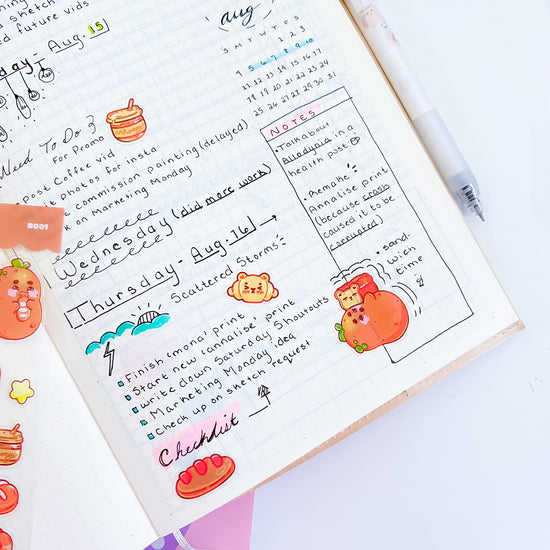 sketch
d future vids
day - Aug. 15
aug
S M T W T F S
1 2 3
4 5 6 7 8 9 10
11 12 13 14 15 16 17
18 19 20 21 22 23 24
25 26 27 28 29 30 31
Need To Do }
For Promo
Post Coffee vid
photos for insta
commission painting (delayed)
on Marketing Monday
Wednesday (did more work)
Thursday - Aug. 16
Scattered Storms
Finish 'mona' print
Start new 'annalise' print
write down Saturday Shoutouts
Marketing Monday idea
check up on sketch request
Checklist
NOTES
• Talk about
Allodynia in a
health post
• Remake
Annalise print
(because crash
caused it to be
corrupted)
• sand-
wich
time
B001